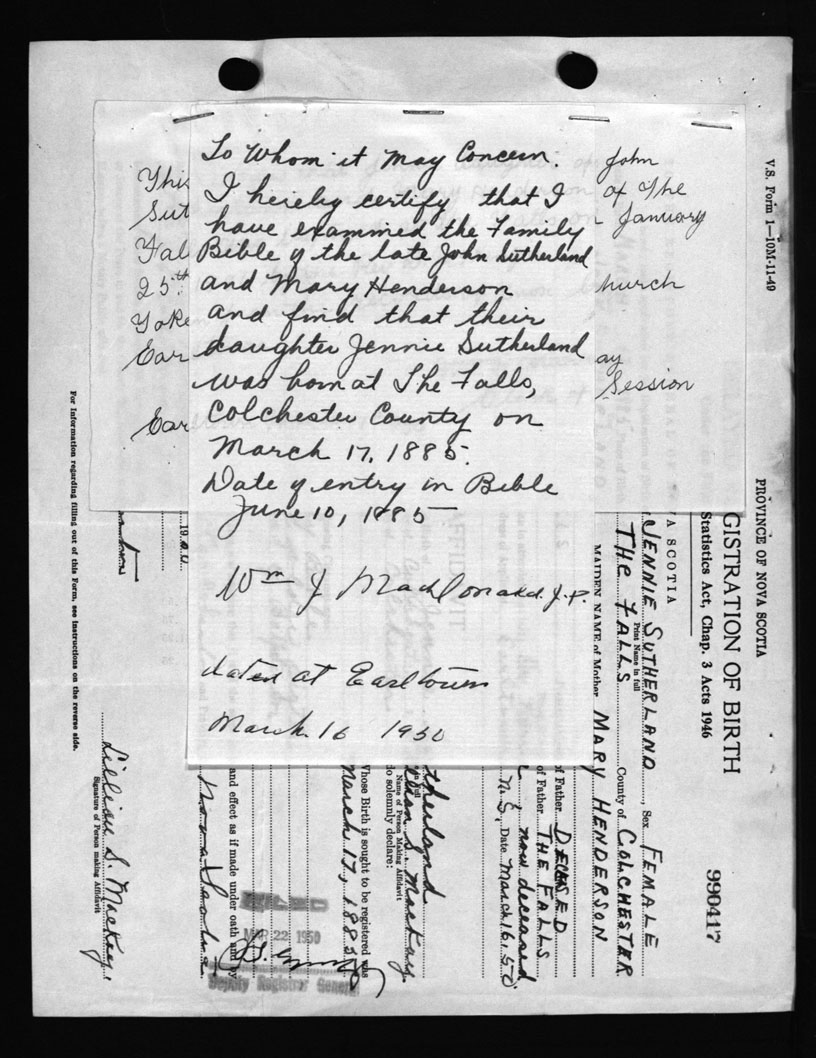 To Whom it May Concern.
I hereby certify that I
have examined the Family
Bible of the late John Sutherland
and Mary Henderson
and find that their
daughter Jennie Sutherland
was born at The Falls,
Colchester County on
March 17, 1885.
Date of entry in Bible
June 10, 1885
Wm J. MacDonald. J.P.
dated at Earltown
March 16 1950
This
Sut
Fal
25th
Yoke
Ear
Ear
John
of The
January
hurch
ay
Session
V.S. Form 1—10M-11-49
PROVINCE OF NOVA SCOTIA
GISTRATION OF BIRTH
Statistics Act, Chap. 3 Acts 1946
990417
A SCOTIA
JENNIE SUTHERLAND, Sex FEMALE
Print Name in full
THE FALLS County of COLCHESTER
MAIDEN NAME of Mother MARY HENDERSON
of Father
of Father THE FALLS
now deceased
N.S. Date March 16, 50
AFFIDAVIT
therland
S. Mackay
Name of Person Making Affidavit
do solemnly declare:
Whose Birth is sought to be registered was
March 17, 1885
and effect as if made under oath and by
Nova Scotia
MAR 22 1950
Deputy Registrar General
19
Lillian S. Mackay
Signature of Person making Affidavit
For Information regarding filling out of this Form, see instructions on the reverse side.